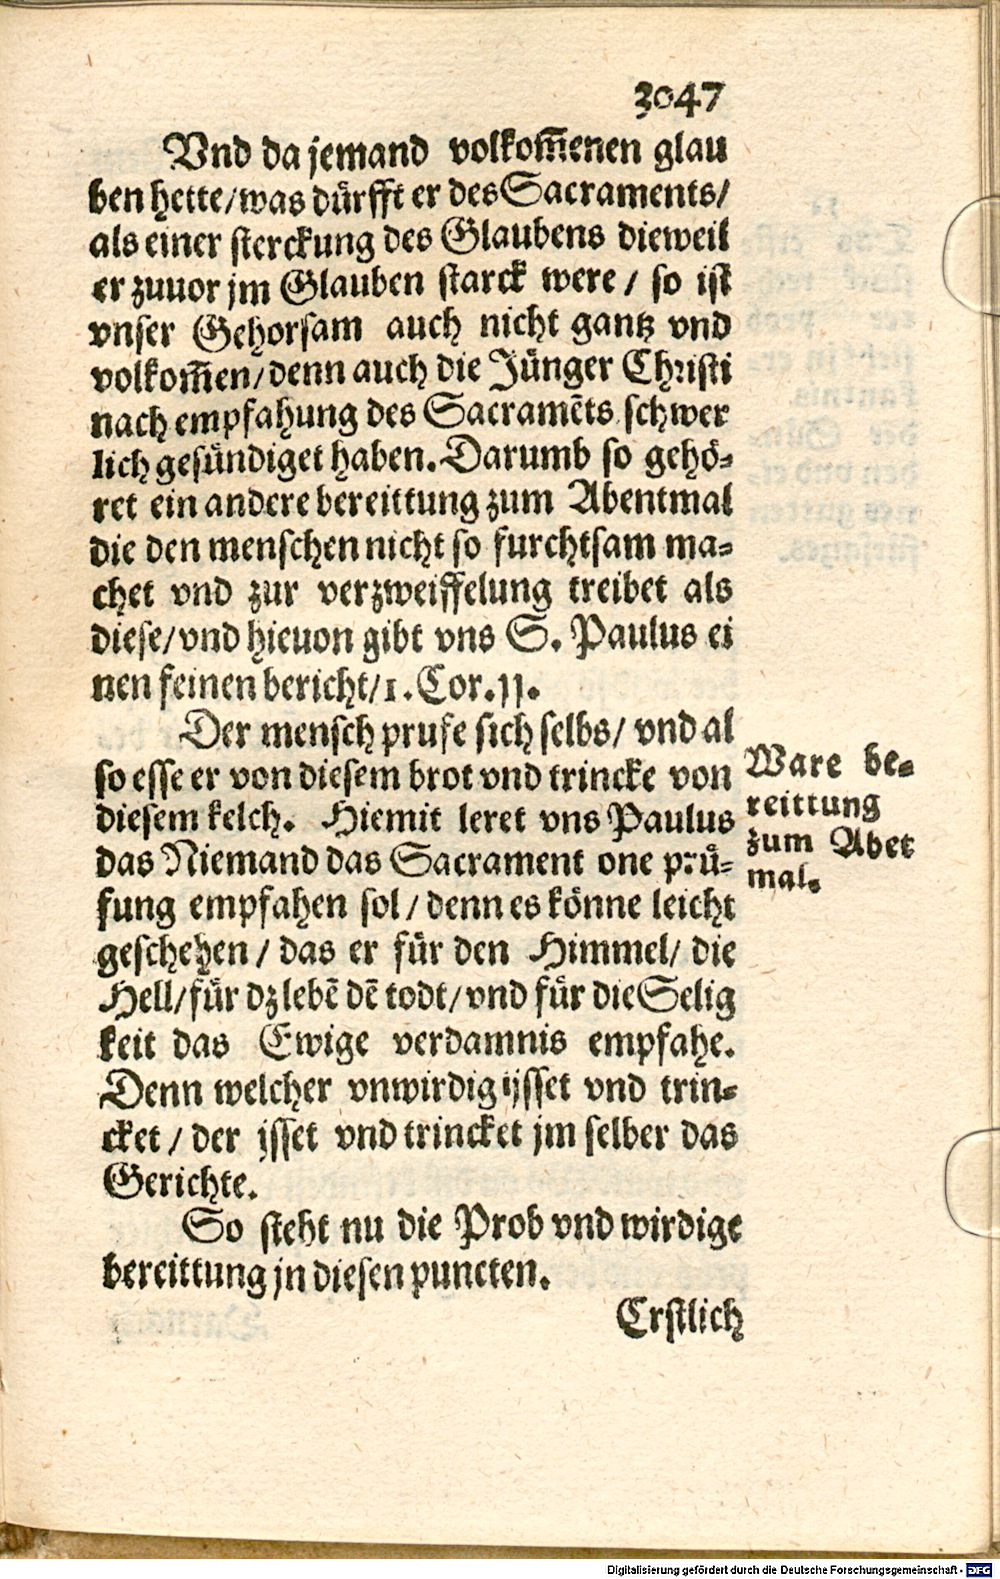 3047
Vnd da jemand volkom̃enen glau
ben hette/was dürfft er des Sacraments/
als einer sterckung des Glaubens dieweil
er zuuor jm Glauben starck were / so ist
vnser Gehorsam auch nicht gantz vnd
volkom̃en/denn auch die Jünger Christi
nach empfahung des Sacramẽts schwer
lich gesündiget haben. Darumb so gehö-
ret ein andere bereittung zum Abentmal
die den menschen nicht so furchtsam ma-
chet vnd zur verzweiffelung treibet als
diese/vnd hieuon gibt vns S. Paulus ei
nen feinen bericht/1. Cor. 11.
Der mensch prufe sich selbs/ vnd al
so esse er von diesem brot vnd trincke von
diesem kelch. Hiemit leret vns Paulus
das Niemand das Sacrament one prü-
fung empfahen sol / denn es könne leicht
geschehen / das er für den Himmel/ die
Hell/für dz lebẽ dẽ todt/vnd für die Selig
keit das Ewige verdamnis empfahe.
Denn welcher vnwirdig ijsset vnd trin-
cket / der jsset vnd trincket jm selber das
Gerichte.
So steht nu die Prob vnd wirdige
bereittung jn diesen puncten.
Erstlich
Ware be-
reittung
zum Abet
mal.
Digitalisierung gefördert durch die Deutsche Forschungsgemeinschaft - DFG